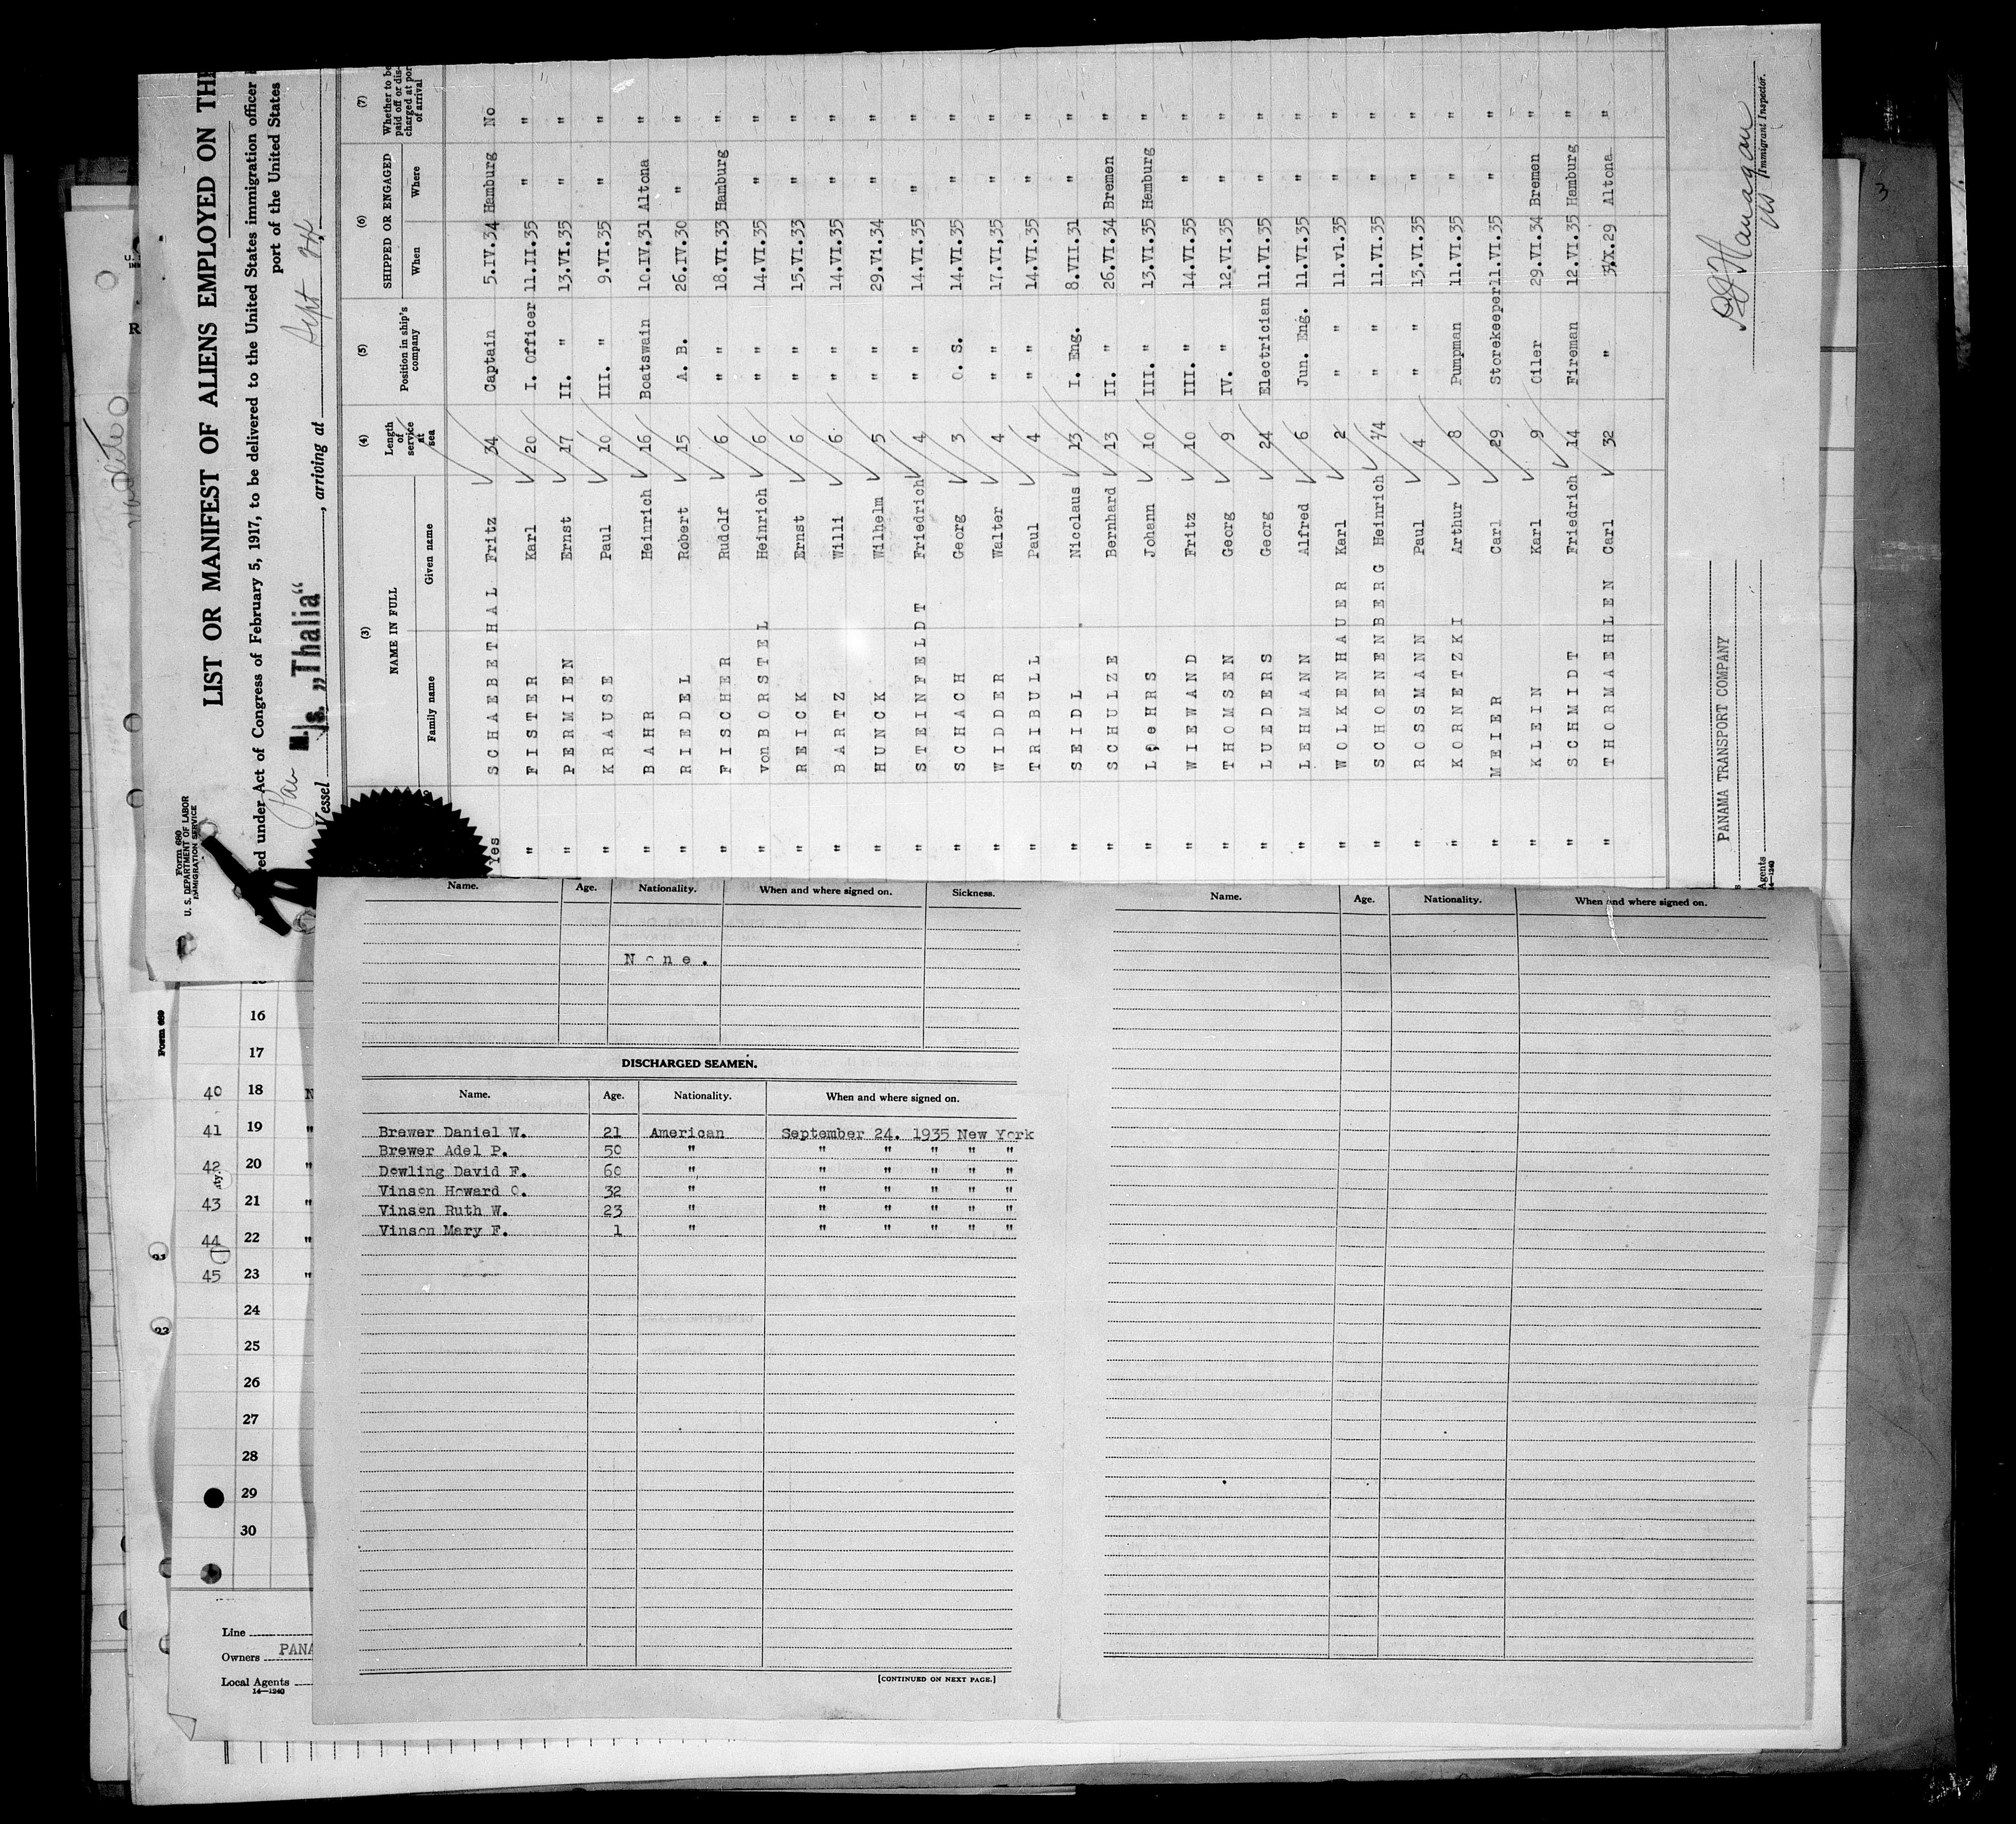 Form 680
U. S. DEPARTMENT OF LABOR
IMMIGRATION SERVICE
LIST OR MANIFEST OF ALIENS EMPLOYED ON THE
ed under Act of Congress of February 5, 1917, to be delivered to the United States immigration officer
port of the United States
Vessel M/s. „Thalia“, arriving at Sept 24
(3) (4) (5) (6) (7)
NAME IN FULL Length of service at sea Position in ship's company SHIPPED OR ENGAGED Whether to be paid off or dis-charged at port of arrival
Family name Given name When Where
Yes SCHAEBETHAL Fritz 34 Captain 5.IV.34 Hamburg No
" FISTER Karl 20 I. Officer 11.II.35 " "
" PERMIEN Ernst 17 II. " 13.VI.35 " "
" KRAUSE Paul 10 III. " 9.VI.35 " "
" BAHR Heinrich 16 Boatswain 10.IV.31 Altona "
" RIEDEL Robert 15 A. B. 26.IV.30 " "
" FISCHER Rudolf 6 " " 18.VI.33 Hamburg "
" von BORSTEL Heinrich 6 " " 14.VI.35 " "
" REICK Ernst 6 " " 15.VI.33 " "
" BARTZ Willi 6 " " 14.VI.35 " "
" HUNCK Wilhelm 5 " " 29.VI.34 " "
" STEINFELDT Friedrich 4 " " 14.VI.35 " "
" SCHACH Georg 3 O. S. 14.VI.35 " "
" WIDDER Walter 4 " " 17.VI,35 " "
" TRIBULL Paul 4 " " 14.VI.35 " "
" SEIDL Nicolaus 13 I. Eng. 8.VII.31 " "
" SCHULZE Bernhard 13 II. " 26.VI.34 Bremen "
" LOeHRS Johann 10 III. " 13.VI.35 Hemburg "
" WIEWAND Fritz 10 III. " 14.VI.35 " "
" THOMSEN Georg 9 IV. " 12.VI.35 " "
" LUEDERS Georg 24 Electrician 11.VI.35 " "
" LEHMANN Alfred 6 Jun. Eng. 11.VI.35 " "
" WOLKENHAUER Karl 2 " " 11.VI.35 " "
" SCHOENENBERG Heinrich 1/4 " " 11.VI.35 " "
" ROSSMANN Paul 4 " " 13.VI.35 " "
" KORNETZKI Arthur 8 Pumpman 11.VI.35 " "
" MEIER Carl 29 Storekeeper 11.VI.35 " "
" KLEIN Karl 9 Oiler 29.VI.34 Bremen "
" SCHMIDT Friedrich 14 Fireman 12.VI.35 Hamburg "
" THORMAEHLEN Carl 32 " X.29 Altona "
PANAMA TRANSPORT COMPANY
Agents
14—1240
Immigrant Inspector.
3
Name. Age. Nationality. When and where signed on. Sickness.
None.
DISCHARGED SEAMEN.
Name. Age. Nationality. When and where signed on.
Brewer Daniel W. 21 American September 24. 1935 New York
Brewer Adel P. 50 " " " " " "
Dowling David F. 60 " " " " " "
Vinson Howard O. 32 " " " " " "
Vinson Ruth W. 23 " " " " " "
Vinson Mary F. 1 " " " " " "
[CONTINUED ON NEXT PAGE.]
Name. Age. Nationality. When and where signed on.
Form 689
16
17
40 18 N
41 19 "
42 20 "
43 21 "
44 22 "
45 23 "
24
25
26
27
28
29
30
Line
Owners PANA
Local Agents
14—1240